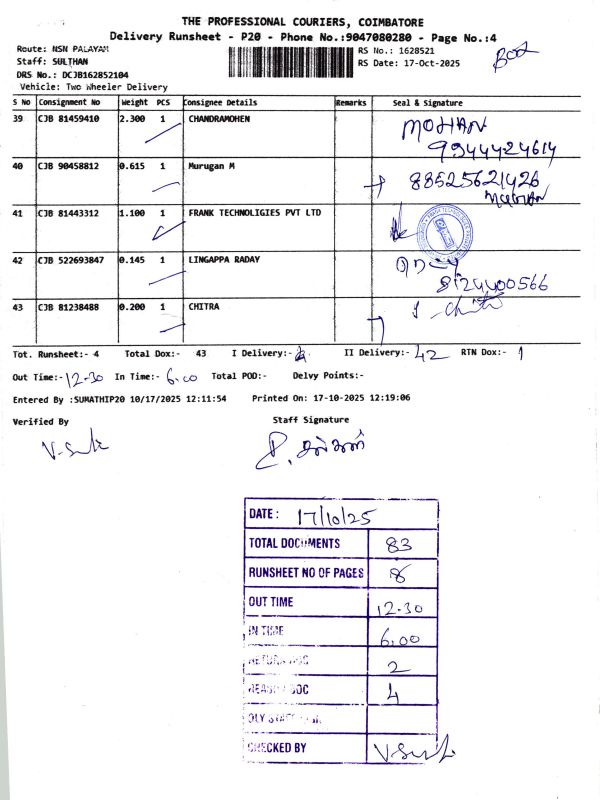 THE PROFESSIONAL COURIERS, COIMBATORE
Delivery Runsheet - P20 - Phone No.:9047080280 - Page No.:4
Route: NSN PALAYAM
RS No.: 1628521
Staff: SULTHAN
RS Date: 17-Oct-2025
DRS No.: DCJB162852104
Vehicle: Two Wheeler Delivery
S No Consignment No Weight PCS Consignee Details Remarks Seal & Signature
39 CJB 81459410 2.300 1 CHANDRAMOHEN MOHAN
9944424614
40 CJB 90458812 0.615 1 Murugan M 88525621426
41 CJB 81443312 1.100 1 FRANK TECHNOLIGIES PVT LTD
42 CJB 522693847 0.145 1 LINGAPPA RADAY
8124400566
43 CJB 81238488 0.200 1 CHITRA
Tot. Runsheet:- 4 Total Dox:- 43 I Delivery:- II Delivery:- 42 RTN Dox:- 1
Out Time:- 12-30 In Time:- 6.00 Total POD:- Delvy Points:-
Entered By :SUMATHIP20 10/17/2025 12:11:54 Printed On: 17-10-2025 12:19:06
Verified By Staff Signature
DATE: 17/10/25
TOTAL DOCUMENTS 83
RUNSHEET NO OF PAGES 8
OUT TIME 12-30
IN TIME 6.00
RETURN DOC 2
DOC 4
CHECKED BY